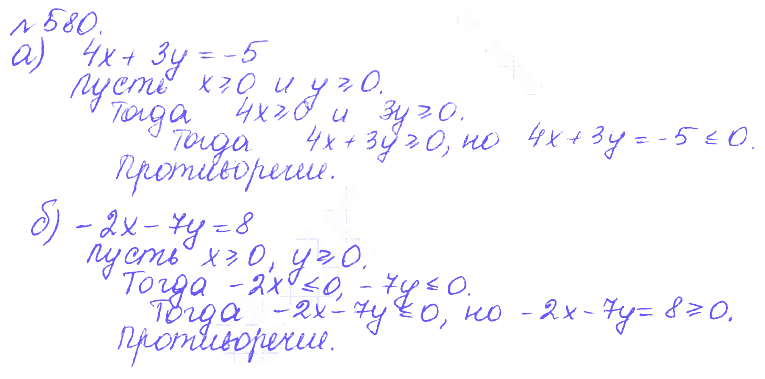 №580.
а) 4x + 3y = -5
Пусть x ≥ 0 и y ≥ 0.
Тогда 4x ≥ 0 и 3y ≥ 0.
Тогда 4x + 3y ≥ 0, но 4x + 3y = -5 ≤ 0.
Противоречие.
б) -2x - 7y = 8
Пусть x ≥ 0, y ≥ 0.
Тогда -2x ≤ 0, -7y ≤ 0.
Тогда -2x - 7y ≤ 0, но -2x - 7y = 8 ≥ 0.
Противоречие.